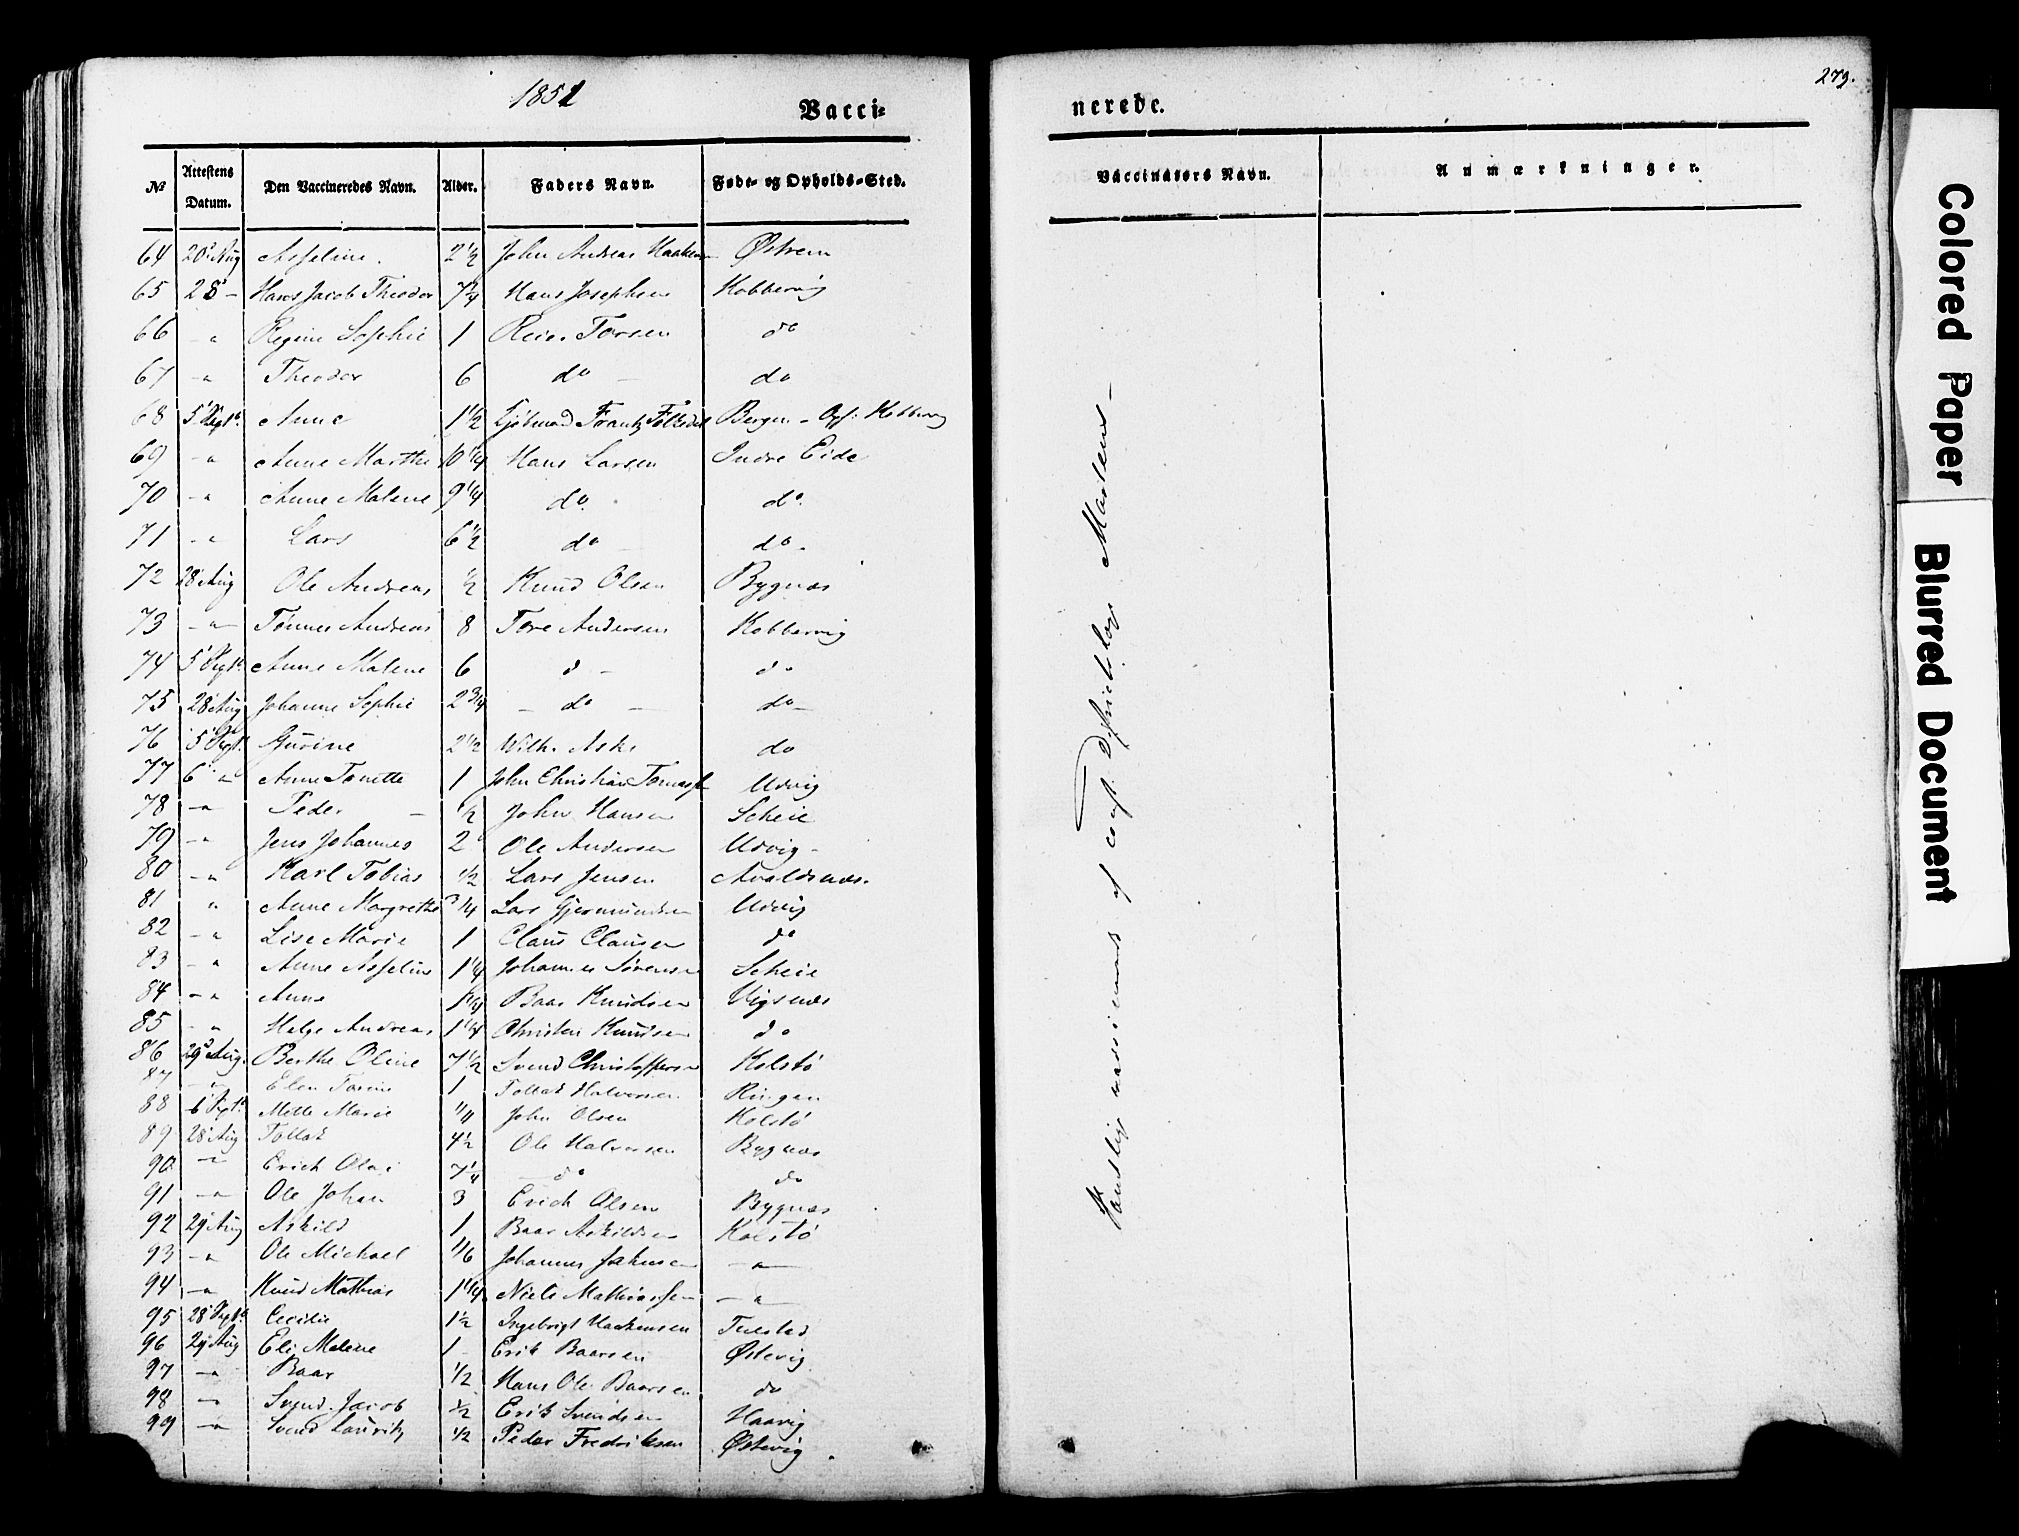 1851
Vacci-
№ Attestens Datum. Den Vaccineredes Navn. Alder. Faders Navn. Føde- og Opholds-Sted.
64 20 Aug Asseline. 2 1/2 John Andreas Østrem
65 28 - Hans Jacob Theodor 7 1/4 Hans Josephsen Kobbervig
66 - " Regine Sophie 1 Reier Torsen do
67 - " Theodor 6 do - do
68 5 Sept. Anne 1 1/2 Frantz Bergen - Opf: Kobbervig
69 - " Anne Marthe 10 1/4 Hans Larsen Indre Eide
70 - " Anne Malene 9 1/4 do. do.
71 - " Lars 6 1/2 do - do.
72 28 Aug Ole Andreas 1/2 Knud Olsen Bygnæs
73 - " - Tønnes Andreas 8 Tore Andersen Kobbervig
74 5 Sept. Anne Malene 6 d - do
75 28 Aug Johanne Sophie 2 3/4 - do - do -
76 5 Sept. Gurine 2 1/2 Wilh. Aske do
77 6 " Anne Tonette 1 John Christian Utvig
78 - " Peder - 1/2 John Hansen Scheie
79 - " Jens Johannes 2 Ole Andersen Utvig -
80 - " Karl Tobias 1/2 Lars Jensen Avaldsnæs.
81 " Anne Margrethe 3/4 Lars Gjermundsen Utvig
82 - " Lise Marie 1 Claus Clausen do
83 - " Anne Asseline 1 1/4 Johannes Sørensen Scheie
84 - " Anne 1 1/4 Baar Knudsen Vigsnæs
85 - " Helge Andreas 1 1/4 Christen Knudsen do
86 29 Aug. Berthe Oline 7 1/2 Svend Christoffersen Kolstø
87 - " Elen Tomine 1 Tollak Halvorsen Ringen
88 6 Sept. Mette Marie 1/4 John Olsen Kolstø
89 28 Aug Tollak 4 1/2 Ole Halvorsen Bygnæs
90 - " Erich Olai 7 1/4 do do
91 - " Ole Johan 3 Erich Olsen Bygnæs
92 29 Aug Askild 1 Baar Askildsen Kolstø
93 - " Ole Michael 1/6 Johannes Johnsen - " -
94 - " Knud Mathias 1 1/4 Niels Mathiassen - " -
95 28 Sept. Cecilie 1 1/2 Ingebrigt Haakensen Tuestad
96 29 Aug Eli Malene 1 - Erik Baarsen Østevig
97 - " Baar 1/2 Hans Ole Baarsen do
98 - " Svend Jacob 1/2 Erik Svendsen Haavig
99 - " Svend Lauritz 1/2 Peder Fredriksen Østevig.
279.
nerede.
Vaccinatørs Navn. Anmærkninger.
Samtlige vaccinerede af const. Districtslæge Martens -
Colored Paper
Blurred Document